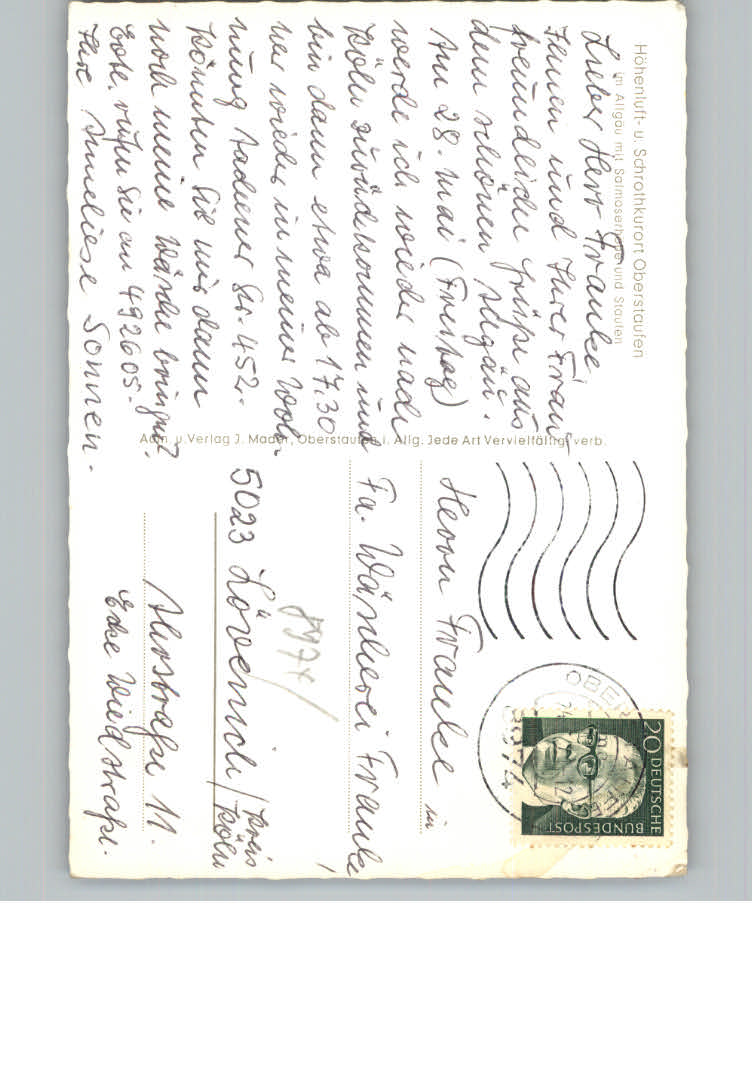 Höhenluft- u. Schrothkurort Oberstaufen
im Allgäu mit Salmaserhöhe und Staufen
Lieber Herr Franke
Ihnen und Ihrer Frau
freundliche Grüße aus
dem schönen Allgäu.
Am 28. Mai (Freitag)
werde ich wieder nach
Köln zurückkommen und
bin dann etwa ab 17,30
Uhr wieder in meiner Woh-
nung Aachener Str. 452.
Könnten Sie mir dann
noch meine Wäsche bringen?
Evtl. rufen Sie an 492605.
Ihre Anneliese Sonnen.
Adh. u. Verlag J. Mader, Oberstaufen i. Allg. Jede Art Vervielfältig. verb.
Herrn Franke in
Fa. Wäscherei Franke
5023 Lövenich / Kreis Köln
8974
Ahrstraße 11.
Ecke Wiedstraße.
20 DEUTSCHE
BUNDESPOST
OBER
8974